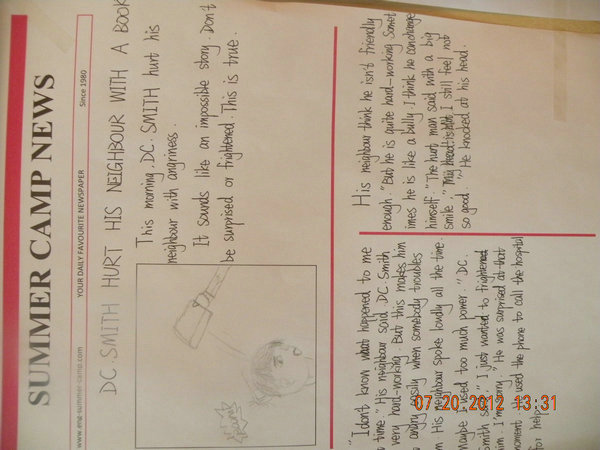 SUMMER CAMP NEWS
www.eng-summer-camp.com YOUR DAILY FAVOURITE NEWSPAPER Since 1980
DC SMITH HURT HIS NEIGHBOUR WITH A BOOK
This morning, DC. SMITH hurt his
neighbour with angriness.
It sounds like an impossible story. Don't
be surprised or frightened. This is true.
"I don't know what happened to me
time." His neighbour said. DC. Smith
very hard-working. But this makes him
angry easily when somebody troubles
His neighbour spoke loudly all the time.
Maybe I used too much power." DC.
Smith said, "I just wanted to frightened
him. I'm sorry." He was surprised at that
moment. He used the phone to call the hospital
for help.
His neighbour think he isn't friendly
enough. "But he is quite hard-working. Somet
imes he is like a bully. I think he can change
himself." The hurt man said with a big
smile. " I still feel not
so good." He knocked at his head.
07/20/2012 13:31